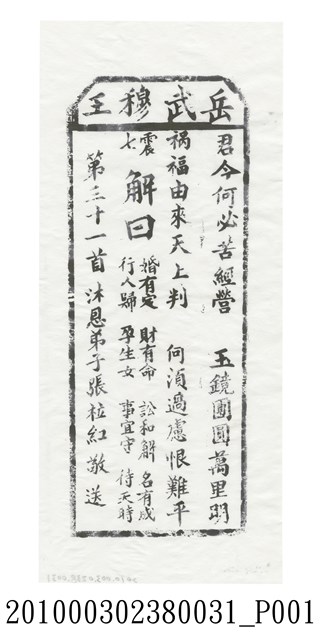 岳武穆王
君今何必苦經營 玉鏡團圓萬里明
禍福由來天上判 何須過慮恨難平
震七 解曰 婚有定 財有命 訟和解 名有成
行人歸 孕生女 事宜守 待天時
第三十一首 沐恩弟子張 紅敬送
201000302380031_P001